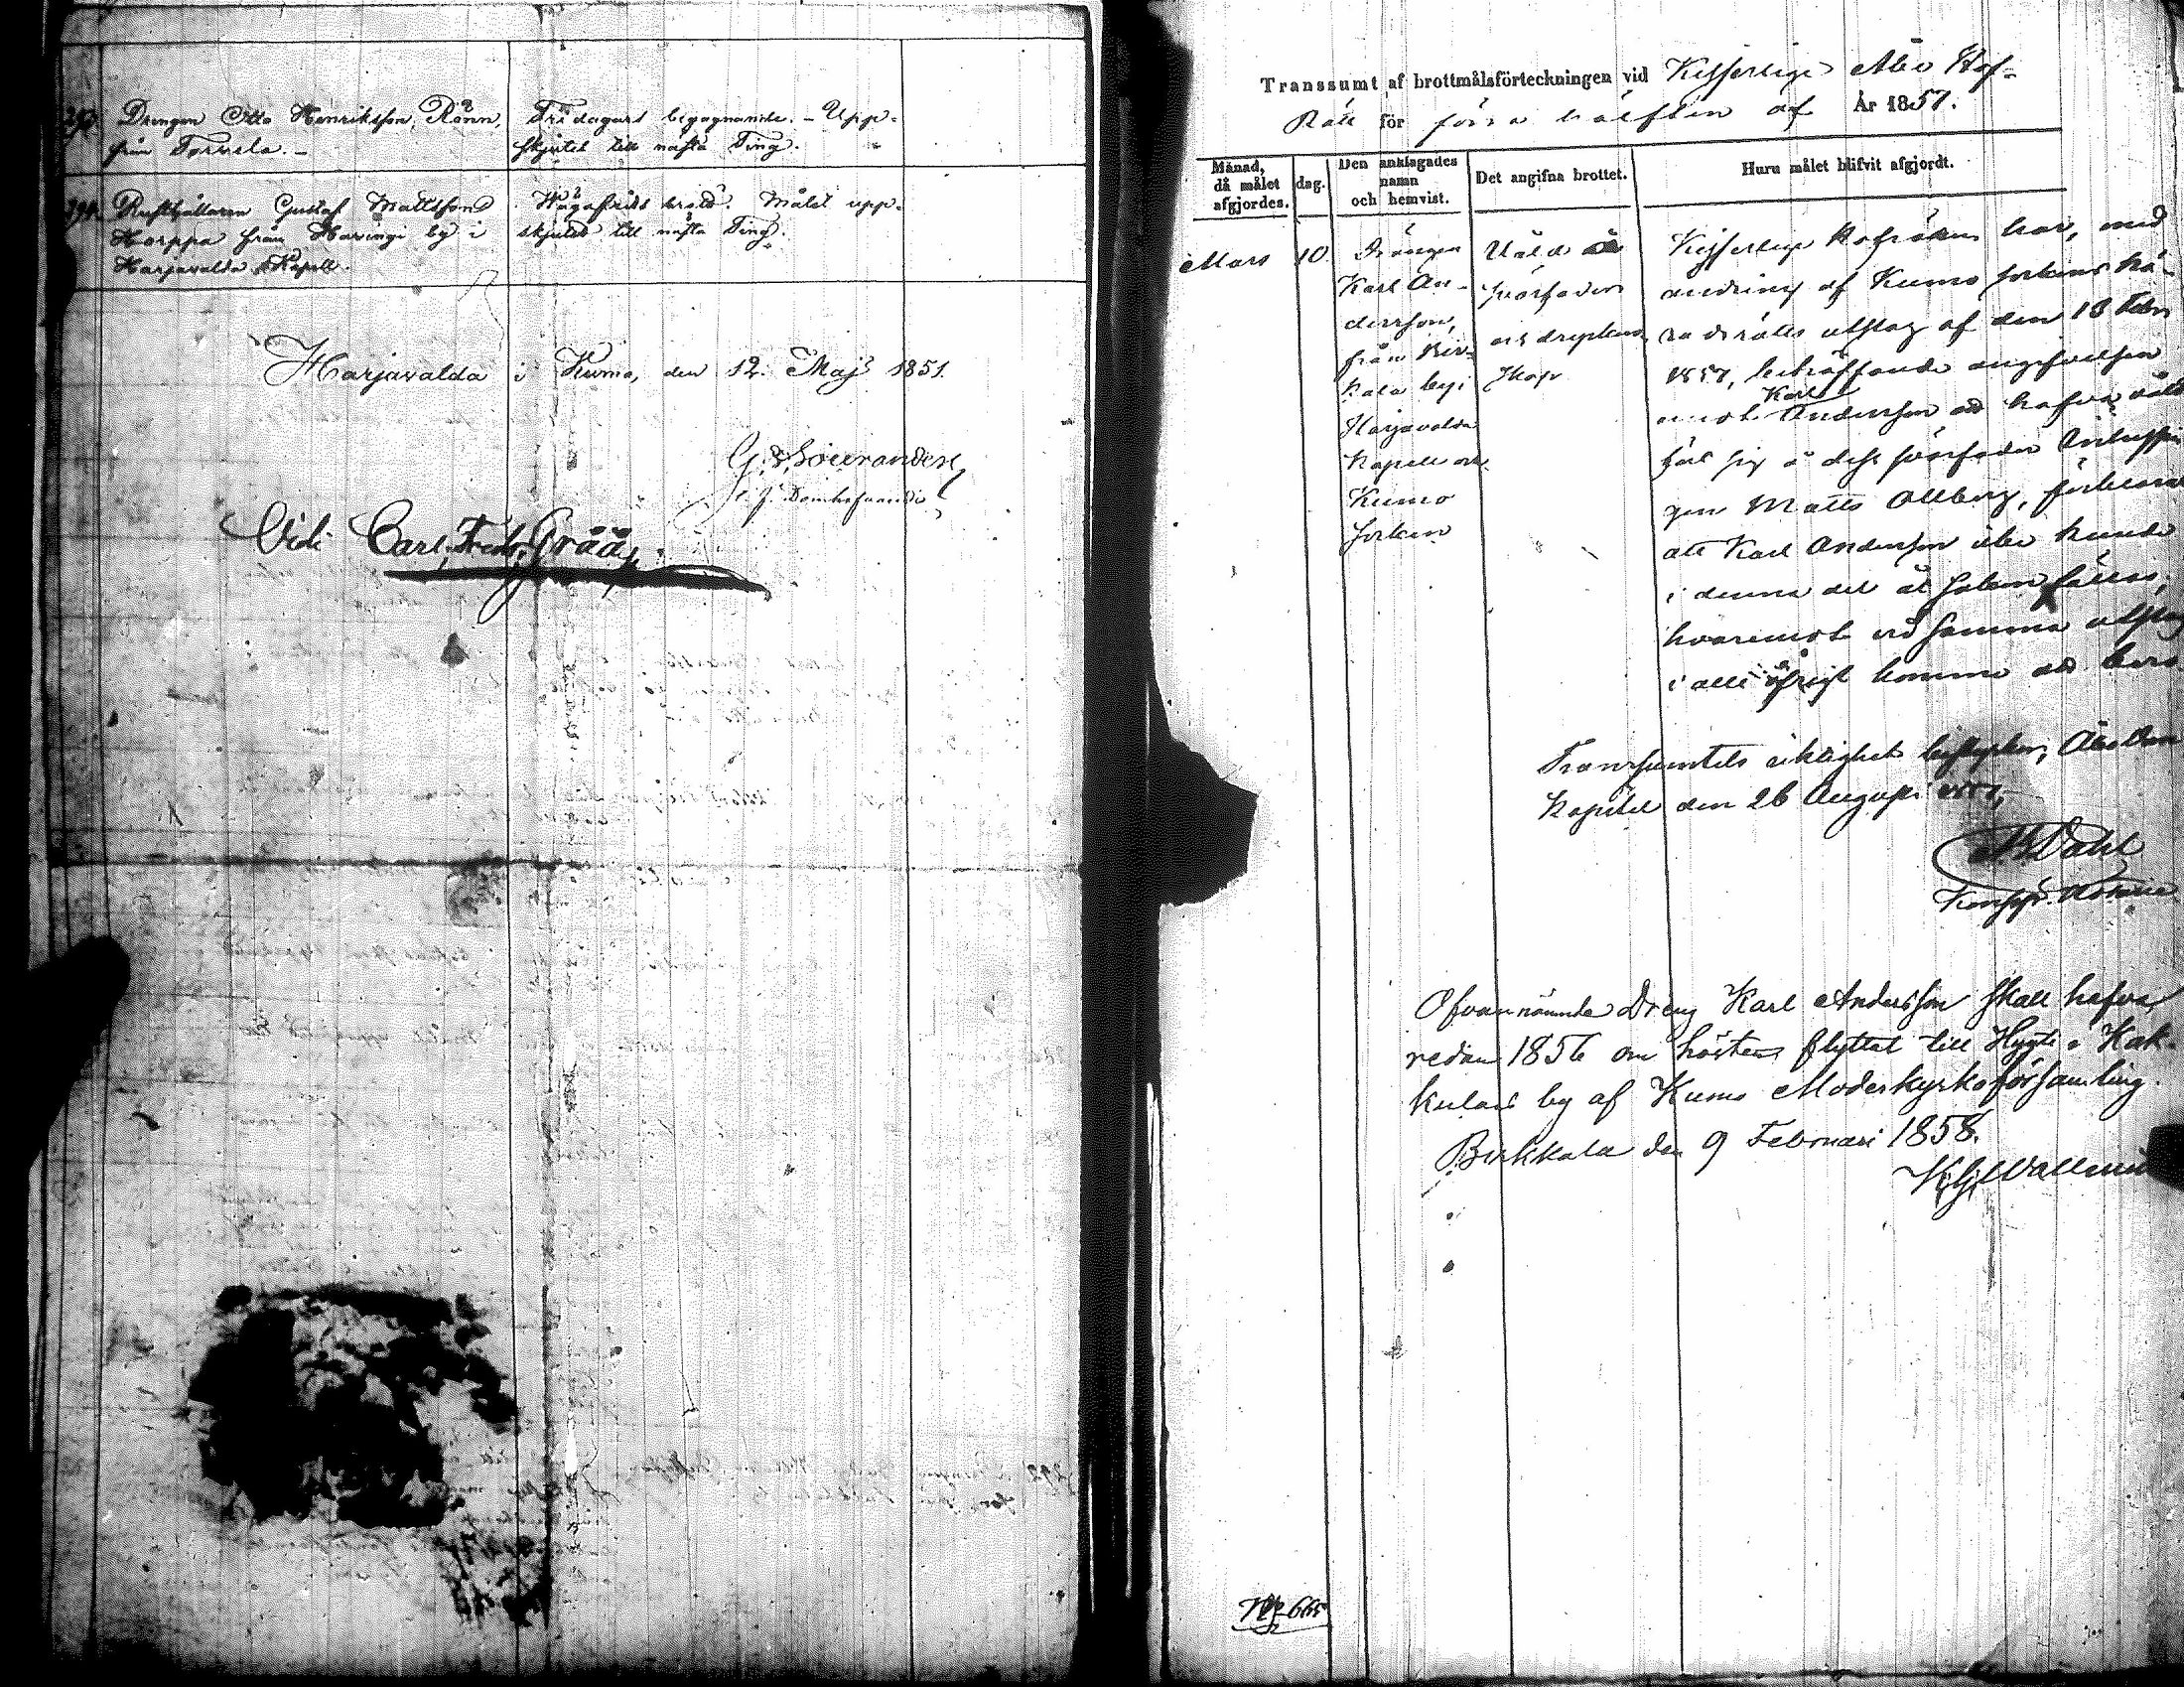 Drengen Otto Henriksson Rånn,
från Torvela.-
Fridagars begagnande. - Upp-
skjutet till nästa Ting.
394. Rusthållaren Gustaf Mattsson
Horppa från Havingi by i
Harjavalda Kapell.
Wägafrids brott. Målet upp-
skjutet till nästa Ting.
Harjavalda i Kumo, den 12. Maj 1851.
Domhafvande
Vidi Carl Fredr. Gråå
Transsumt af brottmålsförteckningen vid Kejserlige Åbo Hof-
Rätt för förra hälften af År 1857.
Månad,
då målet
afgjordes.
dag.
Den anklagades
namn
och hemvist.
Det angifna brottet.
Huru målet blifvit afgjordt.
Mars
10.
Drängen
Karl An-
dersson,
från Bir-
kala by i
Harjavalda
Kapell och
Kumo
socken
Våld å
svärfader
och
Kejserlige Hofrätten har, med
ändring af Kumo sockens hä-
radsrätts utslag af den 13 Febr
1857, beträffande angifvelsen
emot Karl Andersson att hafva våld
fört sig å dess svärfader
Matts Ollberg, förklarat
att Karl Andersson icke kunde
i denna del åt saken fällas,
hvaremot vid samma utslag
i allt öfrigt komme att bero
Transsumtets riktighet bestyrker, Åbo Dom
Kapitel den 26 Augusti 1857,
Dahl
Ofvannämnde Dreng Karl Andersson skall hafva
redan 1856 om hösten flyttat till Hygti i Kak-
kulais by af Kumo Moderkyrkoförsamling.
Birkkala den 9 Februari 1858.
665